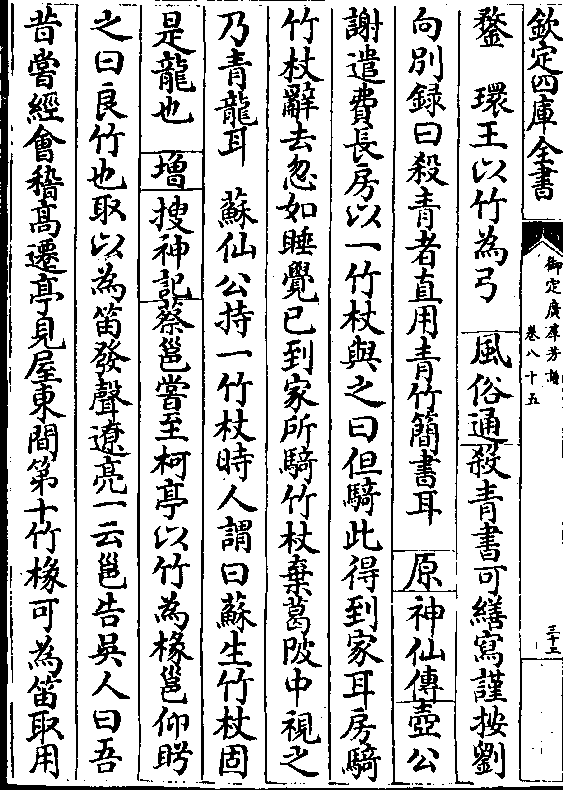 欽定四庫全書
御定廣羣芳譜
卷八十五
三十三
鍪　環王以竹為弓　風俗通殺青書可繕寫謹按劉
向別録曰殺青者直用青竹簡書耳　原神仙傳壺公
謝遣費長房以一竹杖與之曰但騎此得到家耳房騎
竹杖辭去忽如睡覺已到家所騎竹杖棄葛陂中視之
乃青龍耳　蘇仙公持一竹杖時人謂曰蘇生竹杖固
是龍也　增搜神記蔡邕嘗至柯亭以竹為椽邕仰眄
之曰良竹也取以為笛發聲遼亮一云邕告吳人曰吾
昔嘗經會稽高遷亭見屋東間第十竹椽可為笛取用